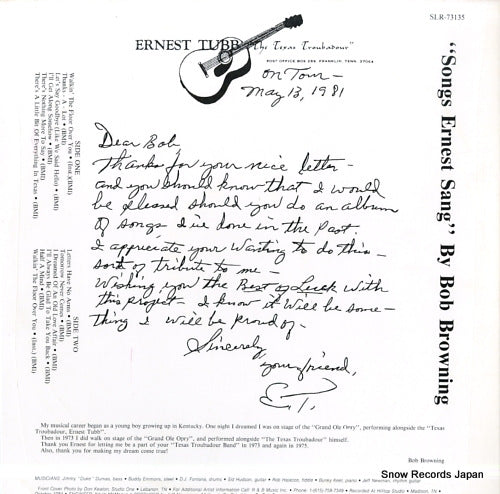 SLR-73135
ERNEST TUBB "The Texas Troubadour"
POST OFFICE BOX 500, FRANKLIN, TENN. 37064
On Tour -
May 13, 1981
Dear Bob,
Thanks for your nice letter -
and you should know that I would
be pleased should you do an album
of songs I've done in the past.
I appreciate your wanting to do this -
sort of tribute to me -
Wishing you the Best of Luck with
this project - I know it will be some-
thing I will be proud of -
Sincerely
your friend,
E.T.
"Songs Ernest Sang" By Bob Browning
SIDE ONE
Walkin' The Floor Over You • (Inst.)(BMI)
Thanks - A - Lot • (BMI)
Let's Say Goodbye (Like We Said Hello) • (BMI)
I'll Get Along Somehow • (BMI)
There's Nothing More To Say • (BMI)
There's A Little Bit Of Everything In Texas • (BMI)
SIDE TWO
Letters Have No Arms • (BMI)
Tomorrow Never Comes • (BMI)
I Dreamed Of An Old Love Affair • (BMI)
I'll Always Be Glad To Take You Back • (BMI)
Half A Mind • (BMI)
Walkin' The Floor Over You • (Inst.) (BMI)
My musical career began as a young boy growing up in Kentucky. One night I dreamed I was on stage of the "Grand Ole Opry", performing alongside the "Texas
Troubadour, Ernest Tubb".
Then in 1973 I did walk on stage of the "Grand Ole Opry", and performed alongside "The Texas Troubadour" himself.
Thank you Ernest for letting me be a part of your "Texas Troubadour Band" in 1973 and again in 1975.
Also, thank you for making my dream come true!
Bob Browning
MUSICIANS: Jimmy "Duke" Dumas, bass • Buddy Emmons, steel • D.J. Fontana, drums • Ed Hudson, guitar • Rob Hajacos, fiddle • Earley Keel, piano • Jeff Newman, rhythm guitar.
Front Cover Photo by Don Keaton, Studio One • Lebanon, TN • For Additional Artist Information Call: R & B Music Inc. Phone: 1-(615)-758-7349 • Recorded At Hilltop Studio • Madison, TN
Snow Records Japan